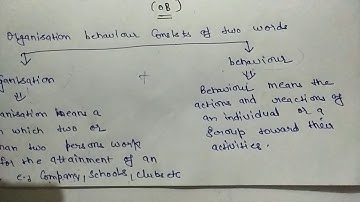 (OB)
Organisation behaviour Consists of two words
ganisation
+
behaviour
anisation means a
n which two or
han two persons work
for the attainment of an
e.g Company, Schools, Clubs etc
Behaviour means the
actions and reactions of
an individual or a
group toward their
activities.